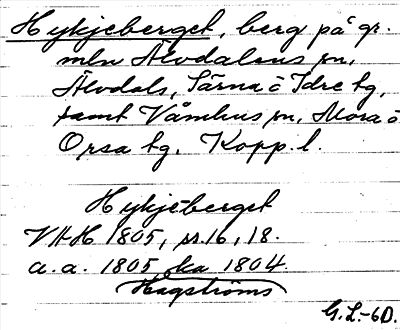 Hykjeberget, berg på gr.
mln Älvdalens sn,
Älvdals, Särna o Idre tg,
samt Våmhus sn, Mora o
Orsa tg. Kopp. l.
Hykjeberget
VHH 1805, s. 16, 18.
a. a. 1805 ka 1804.
Hagströms
G. L.-6D.